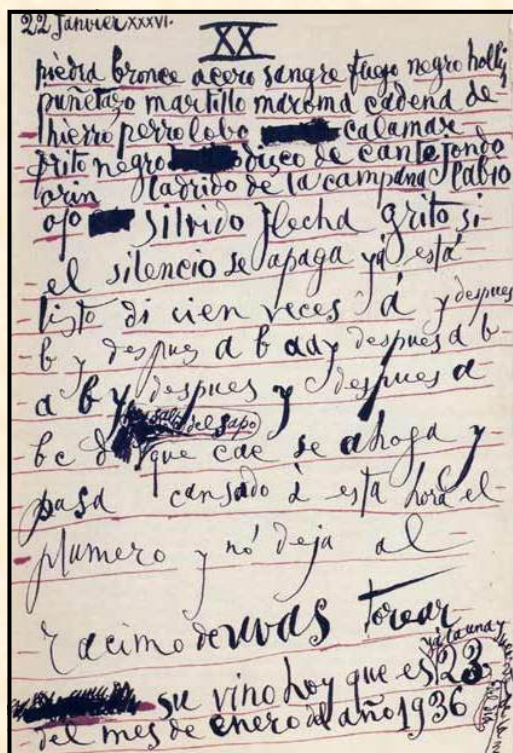 22 Janvier XXXVI.
XX
piedra bronce acero sangre fuego negro hollin
puñetazo martillo maroma cadena de
hierro perro lobo calamar
frito negro disco de cante jondo
orin ladrido de la campana labio
ojo silvido flecha grito si
el silencio se apaga ya está
listo di cien veces á y despues
b y despues a b aa y despues a b
a b y despues y despues a
del sapo
b c d que cae se ahoga y
pasa cansado á esta hora el
plumero y nó deja al
racimo de uvas torear
su vino hoy que es 23
del mes de enero del año 1936